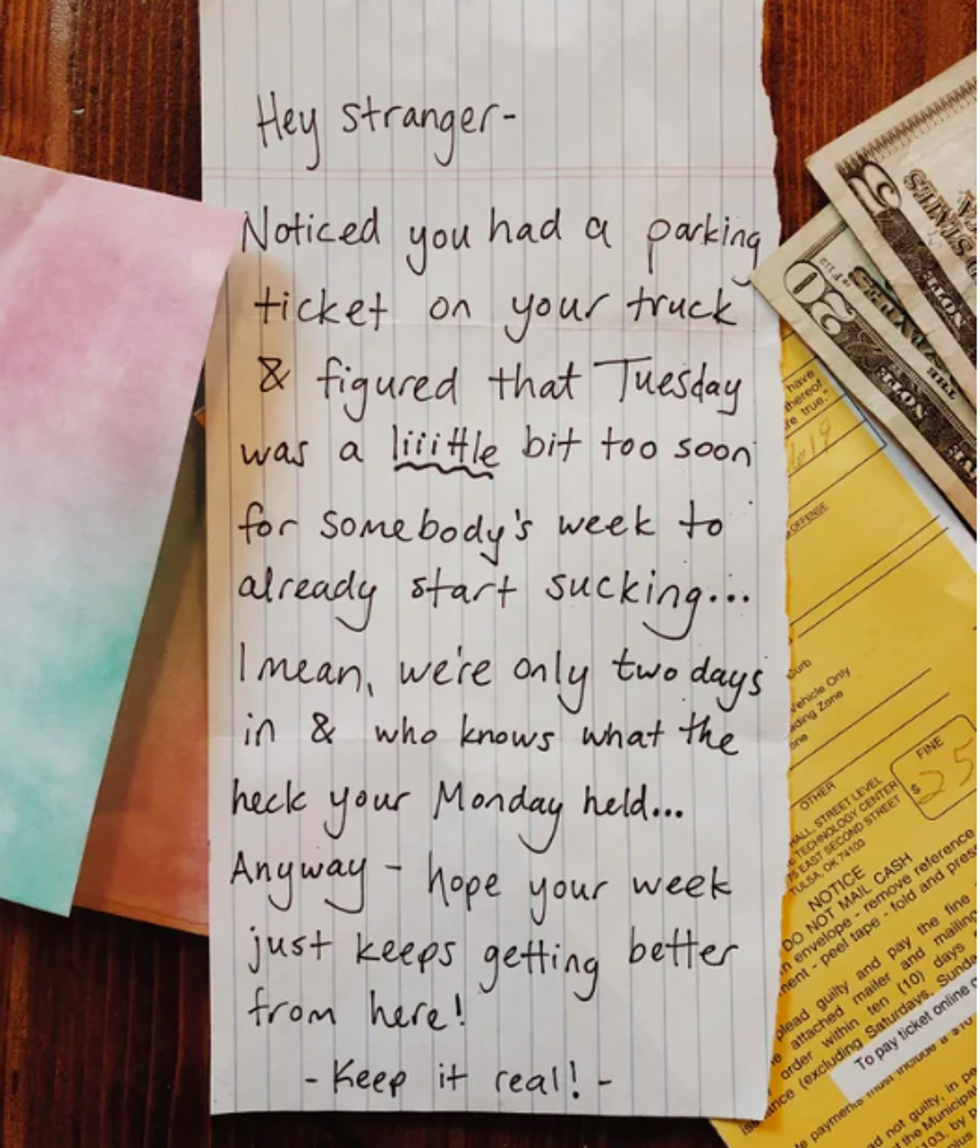 Hey stranger-
Noticed you had a parking
ticket on your truck
& figured that Tuesday
was a liiittle bit too soon
for somebody's week to
already start sucking...
I mean, we're only two days
in & who knows what the
heck your Monday held...
Anyway - hope your week
just keeps getting better
from here!
- Keep it real! -
20
have
thereof
re true.
OFFENSE
Curb
Vehicle Only
ading Zone
one
OTHER
FINE
$25
HALL, STREET LEVEL
E TECHNOLOGY CENTER
75 EAST SECOND STREET
TULSA, OK 74100
NOTICE
DO NOT MAIL CASH
n envelope - remove reference
ment - peel tape - fold and pres
plead guilty and pay the fine
e attached mailer and mailin
order within ten (10) days
(excluding Saturdays, Sund
To pay ticket online
te payments must include a $10
not guilty, in pe
the Municip